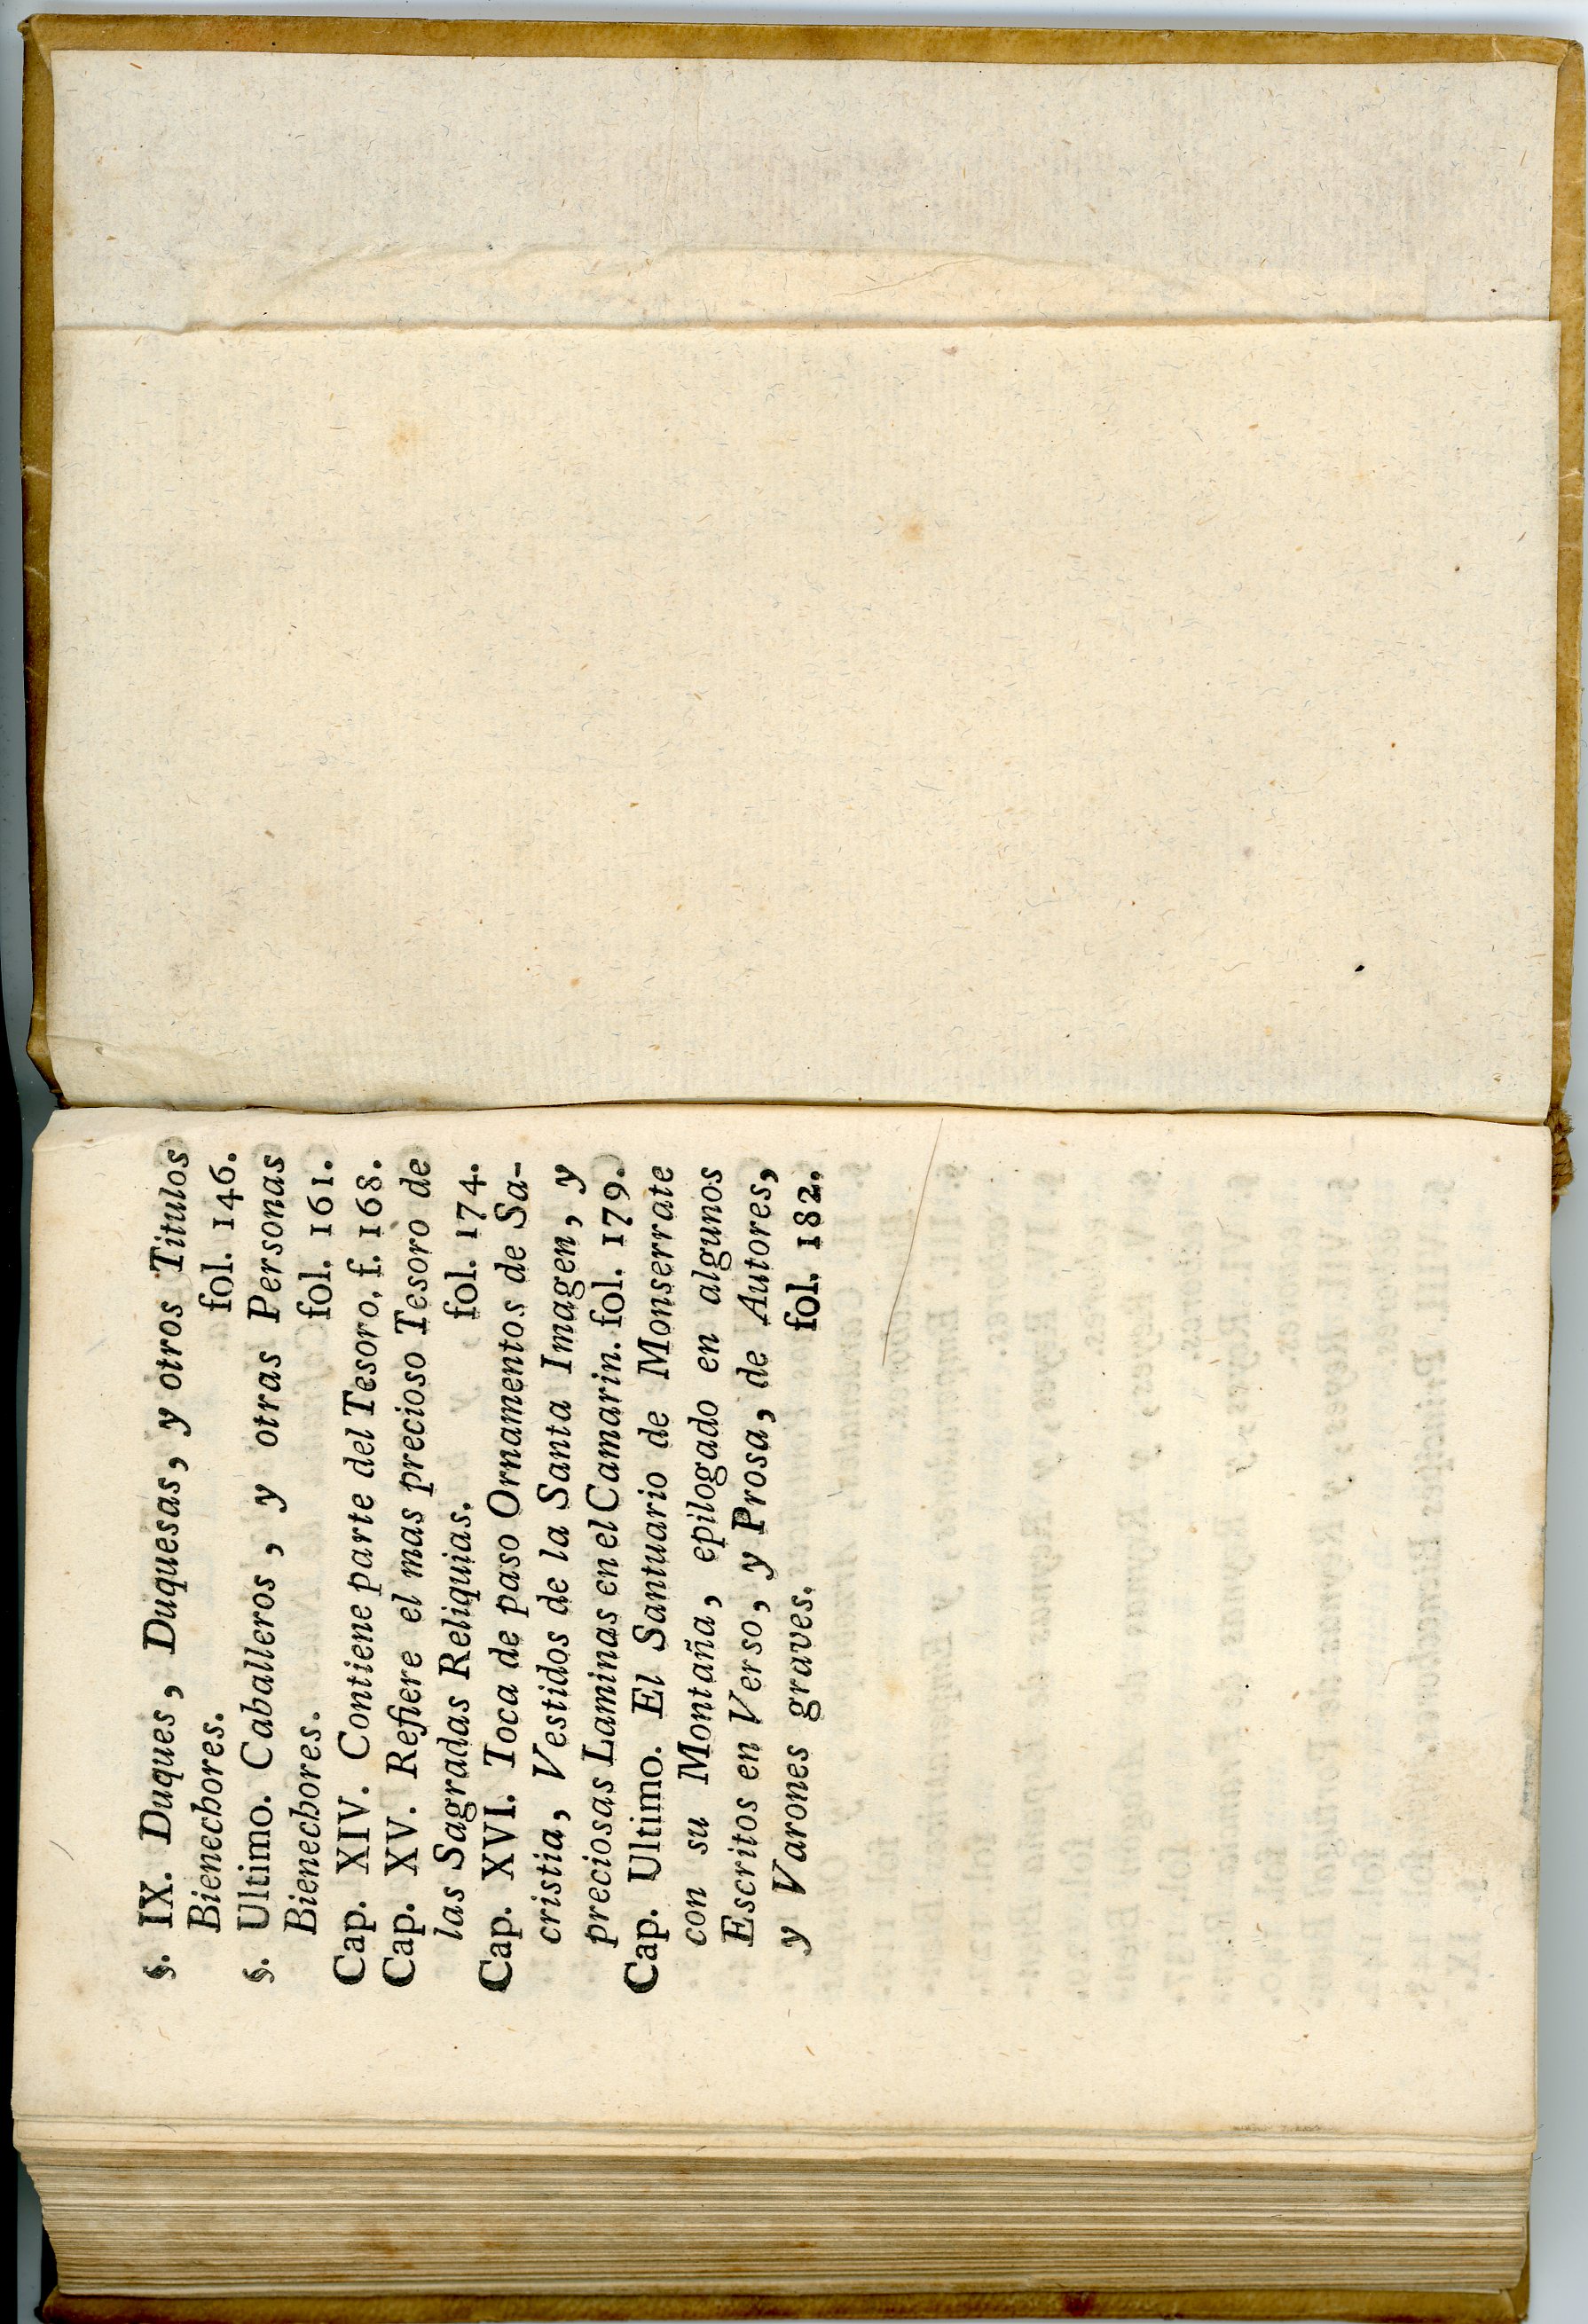 §. IX. Duques, Duquesas, y otros Titulos
Bienechores. fol. 146.
§. Ultimo. Caballeros, y otras Personas
Bienechores. fol. 161.
Cap. XIV. Contiene parte del Tesoro, f. 168.
Cap. XV. Refiere el mas precioso Tesoro de
las Sagradas Reliquias. fol. 174.
Cap. XVI. Toca de paso Ornamentos de Sa-
cristia, Vestidos de la Santa Imagen, y
preciosas Laminas en el Camarin. fol. 179.
Cap. Ultimo. El Santuario de Monserrate
con su Montaña, epilogado en algunos
Escritos en Verso, y Prosa, de Autores,
y Varones graves. fol. 182.